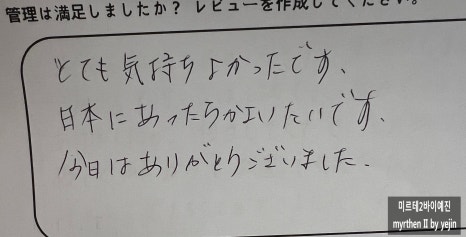 管理は満足しましたか？ レビューを作成してください。
とても気持ちよかったです、
日本にあったらかよいたいです、
今日はありがとうございました.
미르테2바이예진
myrthen II by yejin